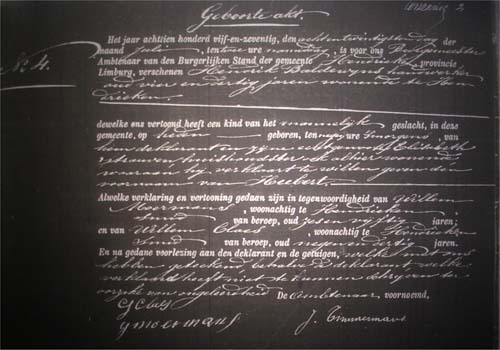 Geboorte akt.
N. 4.
Het jaar achttien honderd vijf-en-zeventig, den achtentwintigsten dag der
maand Juli, ten twee ure namiddag, is voor ons Burgemeester
Ambtenaar van den Burgerlijken Stand der gemeente Hendrieken, provincie
Limburg, verschenen Hendrik Baldewyns handwerker
oud vier en dertig jaren woonende te Hen
drieken.
dewelke ons vertoond heeft een kind van het mannelijk geslacht, in deze
gemeente, op heden geboren, ten negen ure smorgens, van
hem deklarant en zyne echtgenoote Elisabeth
huishoudster alhier woonende
waaraan hy verklaart te willen geven den
voornaam van Heebert.
Alwelke verklaring en vertooning gedaan zijn in tegenwoordigheid van Willem
Moermans, woonachtig te Hendrieken
Smid van beroep, oud zesen vyftig jaren;
en van Willem Claes, woonachtig te Hendrieken
Smid van beroep, oud negen en dertig jaren.
En na gedane voorlezing aan den deklarant en de getuigen, welke met ons
hebben geteekend, behalve de deklarant welke
verklaard heeft niet te kunnen schryven ter
oorzake van ongeleerdheid De Ambtenaar voornoemd,
G Claes
G moermans J. Timmermans